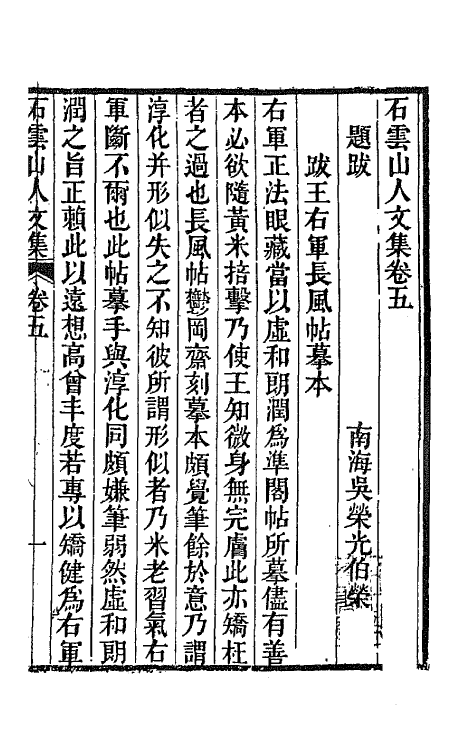 石雲山人文集卷五
題跋
南海吳榮光伯榮
跋王右軍長風帖摹本
右軍正法眼藏當以虛和朗潤爲準閣帖所摹儘有善
本必欲隨黃米掊擊乃使王知微身無完膚此亦矯枉
者之過也長風帖鬱岡齋刻摹本頗覺筆餘於意乃謂
淳化并形似失之不知彼所謂形似者乃米老習氣右
軍斷不爾也此帖摹手與淳化同頗嫌筆弱然虛和朗
潤之旨正賴此以遠想高曾丰度若專以矯健爲右軍
石雲山人文集 卷五 一